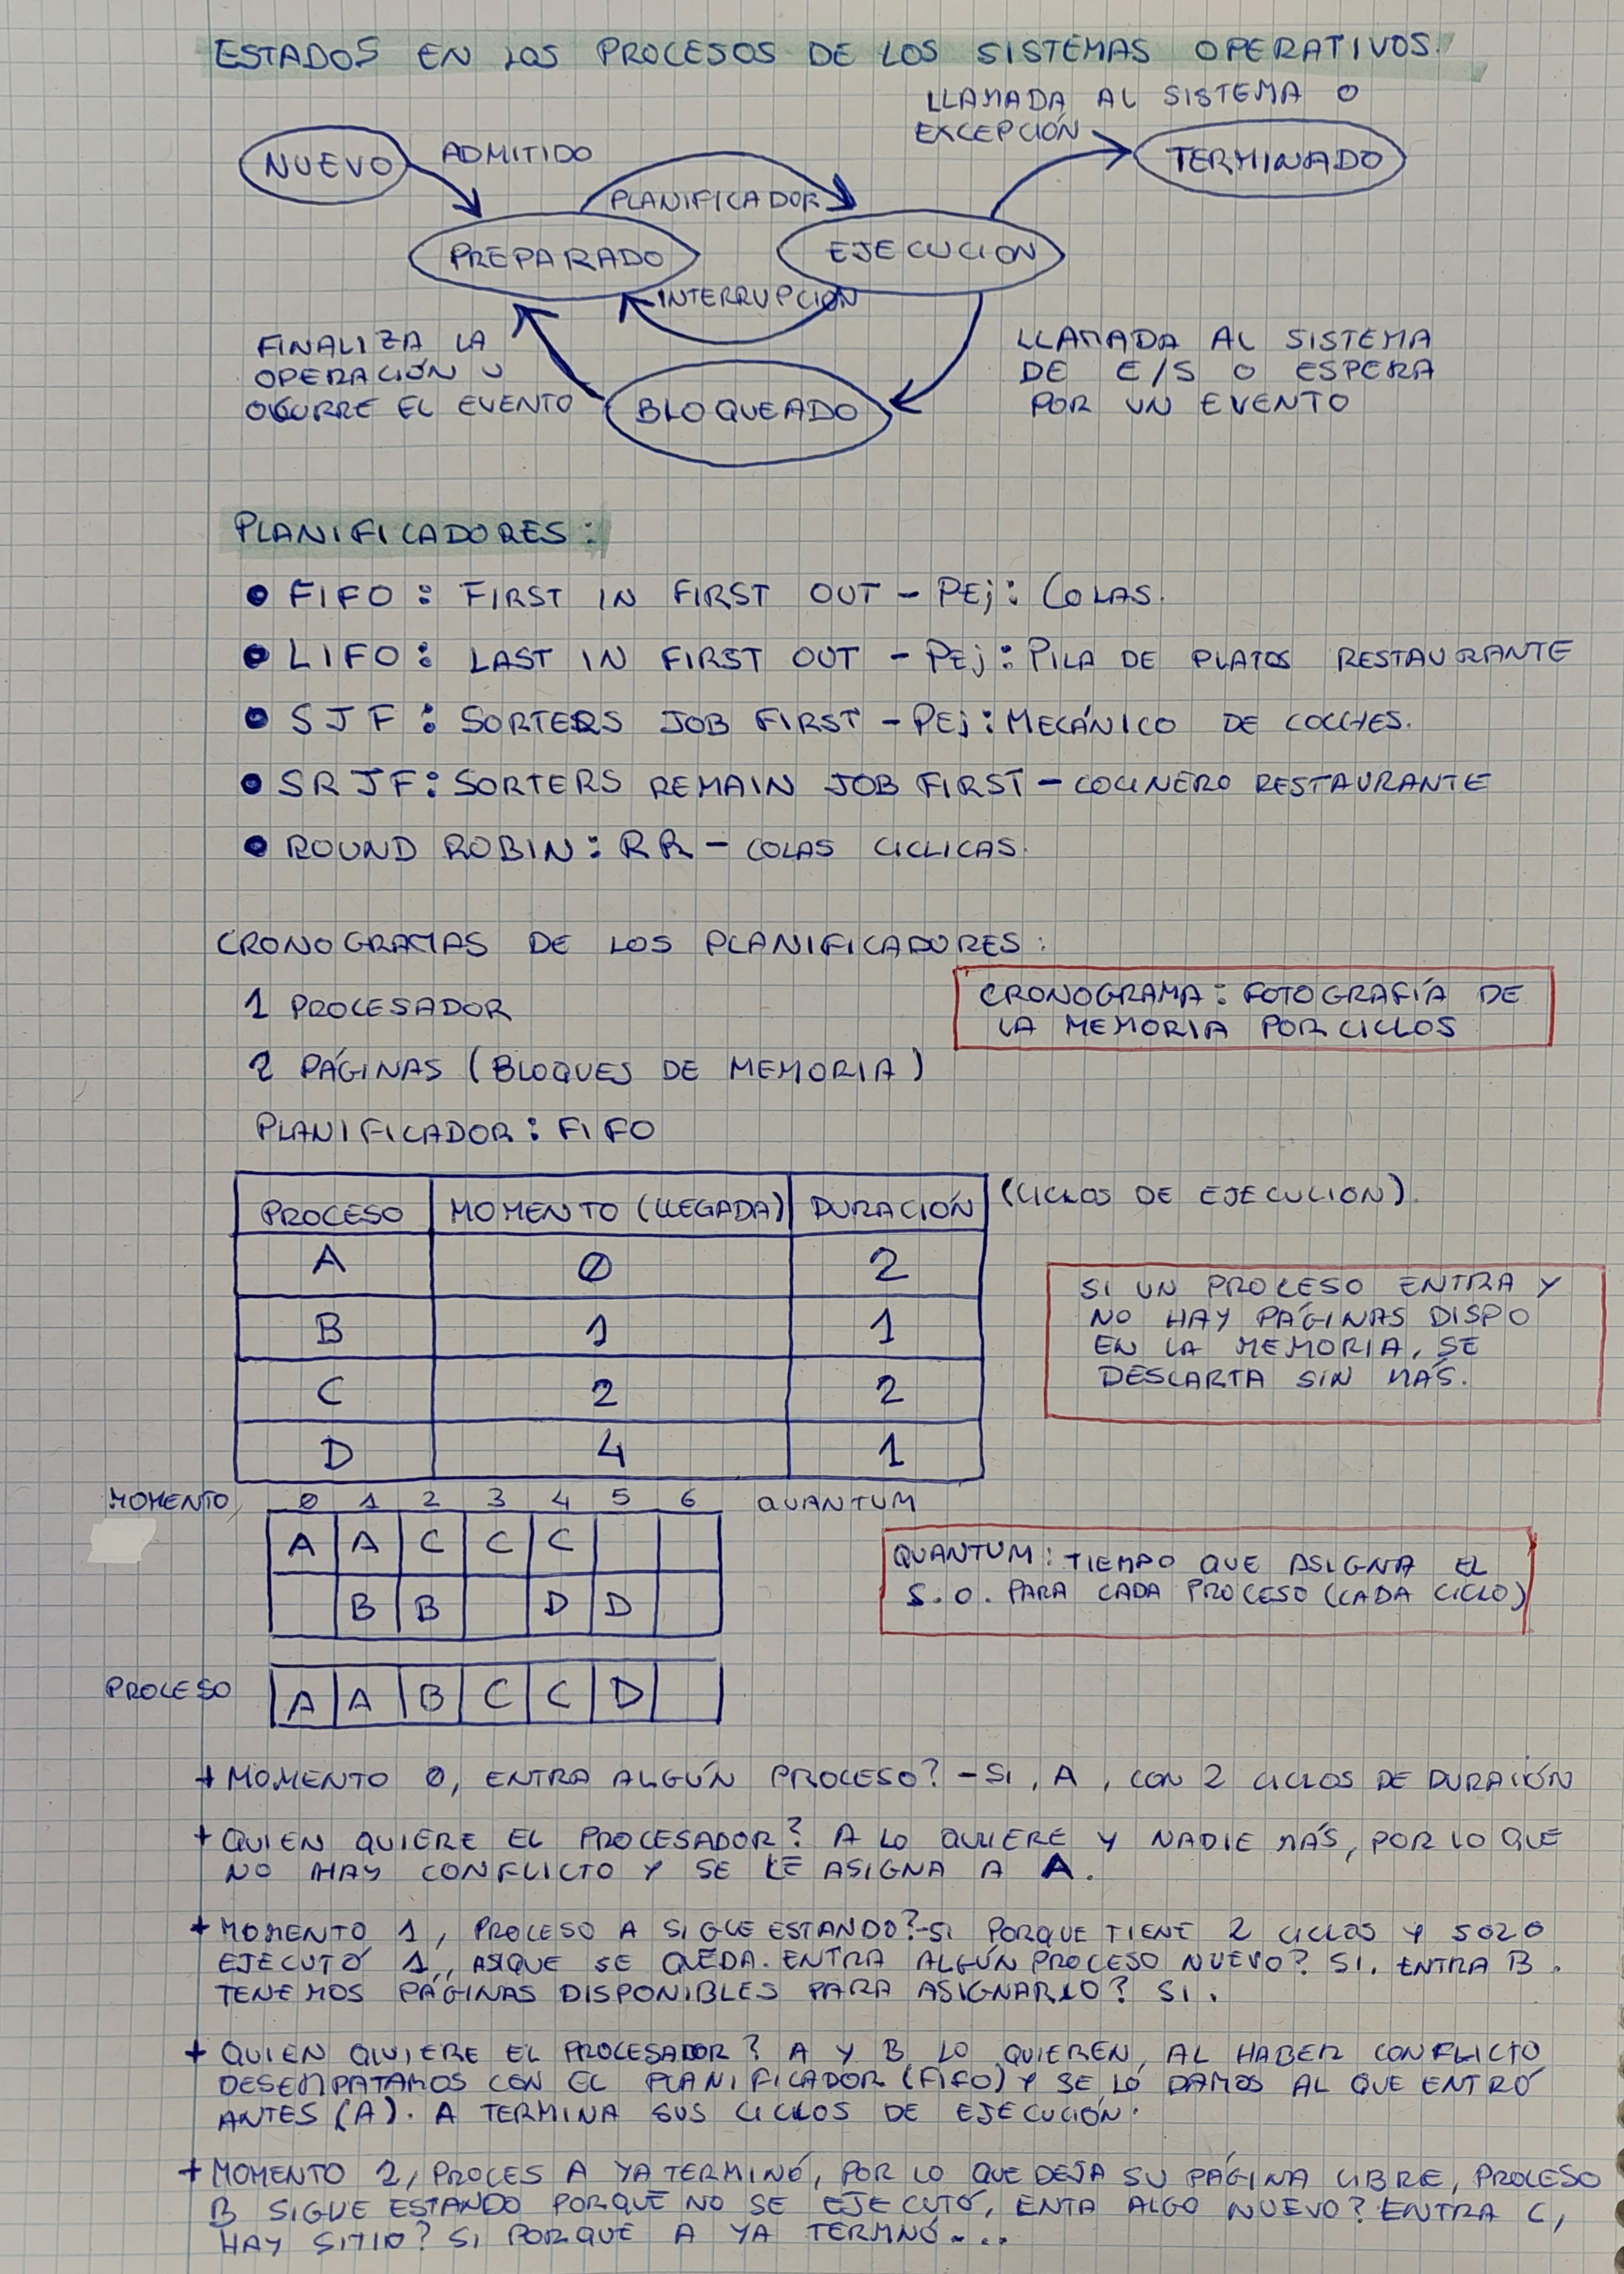 ESTADOS EN LOS PROCESOS DE LOS SISTEMAS OPERATIVOS.
LLAMADA AL SISTEMA O
EXCEPCIÓN
NUEVO
ADMITIDO
TERMINADO
PLANIFICADOR
PREPARADO
EJECUCION
INTERRUPCIÓN
FINALIZA LA
OPERACIÓN U
OCURRE EL EVENTO
LLAMADA AL SISTEMA
DE E/S O ESPERA
POR UN EVENTO
BLOQUEADO
PLANIFICADORES:
• FIFO: FIRST IN FIRST OUT - PEj: COLAS.
• LIFO: LAST IN FIRST OUT - PEj: PILA DE PLATOS RESTAURANTE
• SJF: SORTERS JOB FIRST - PEj: MECÁNICO DE COCHES.
• SRJF: SORTERS REMAIN JOB FIRST - COCINERO RESTAURANTE
• ROUND ROBIN: RR - COLAS CICLICAS.
CRONOGRAMAS DE LOS PLANIFICADORES:
1 PROCESADOR
CRONOGRAMA: FOTOGRAFÍA DE
LA MEMORIA POR CICLOS
2 PÁGINAS (BLOQUES DE MEMORIA)
PLANIFICADOR: FIFO
PROCESO MOMENTO (LLEGADA) DURACIÓN (CICLOS DE EJECUCION).
A 0 2
B 1 1
C 2 2
D 4 1
SI UN PROCESO ENTRA Y
NO HAY PÁGINAS DISPO
EN LA MEMORIA, SE
DESCARTA SIN MÁS.
MOMENTO, 0 1 2 3 4 5 6 QUANTUM
A A C C C
B B D D
QUANTUM: TIEMPO QUE ASIGNA EL
S.O. PARA CADA PROCESO (CADA CICLO)
PROCESO A A B C C D
+ MOMENTO 0, ENTRA ALGÚN PROCESO? - SI, A, CON 2 CICLOS DE DURACIÓN
+ QUIEN QUIERE EL PROCESADOR? A LO QUIERE Y NADIE MÁS, POR LO QUE
NO HAY CONFLICTO Y SE LE ASIGNA A A.
+ MOMENTO 1, PROCESO A SIGUE ESTANDO? -SI PORQUE TIENE 2 CICLOS Y SOLO
EJECUTÓ 1, ASIQUE SE QUEDA. ENTRA ALGÚN PROCESO NUEVO? SI. ENTRA B.
TENEMOS PÁGINAS DISPONIBLES PARA ASIGNARLO? SI.
+ QUIEN QUIERE EL PROCESADOR? A Y B LO QUIEREN, AL HABER CONFLICTO
DESEMPATAMOS CON EL PLANIFICADOR (FIFO) Y SE LO DAMOS AL QUE ENTRÓ
ANTES (A). A TERMINA SUS CICLOS DE EJECUCIÓN.
+ MOMENTO 2, PROCES A YA TERMINÓ, POR LO QUE DEJA SU PÁGINA LIBRE, PROCESO
B SIGUE ESTANDO PORQUE NO SE EJECUTÓ, ENTA ALGO NUEVO? ENTRA C,
HAY SITIO? SI PORQUE A YA TERMNÓ....